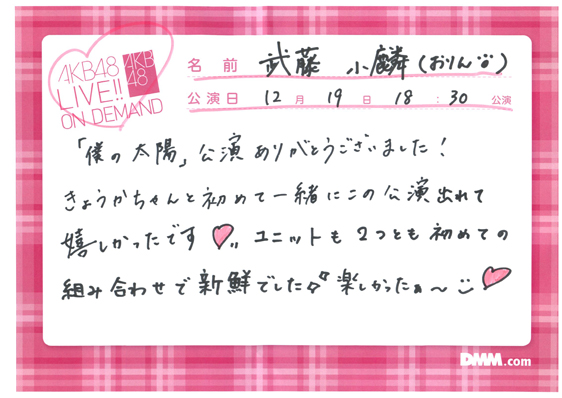 AKB48
LIVE!!
ON DEMAND
AKB
48
名前 武藤 小麟(おりん)
公演日 12月 19日 18:30 公演
「僕の太陽」公演ありがとうございました!
きょうかちゃんと初めて一緒にこの公演出れて
嬉しかったです♥ユニットも2つとも初めての
組み合わせで新鮮でした 楽しかったぁ〜
DMM.com